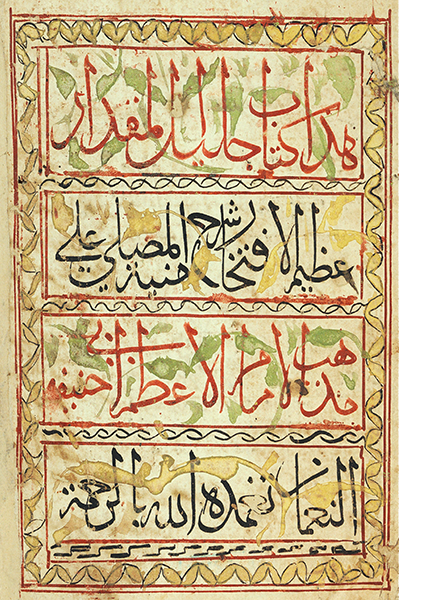 هذا كتاب جليل المقدار
عظيم الافتخار شرح منية المصلي علي
مذهب الامام الاعظم ابي حنيفة
النعمان تغمده الله بالرحمة